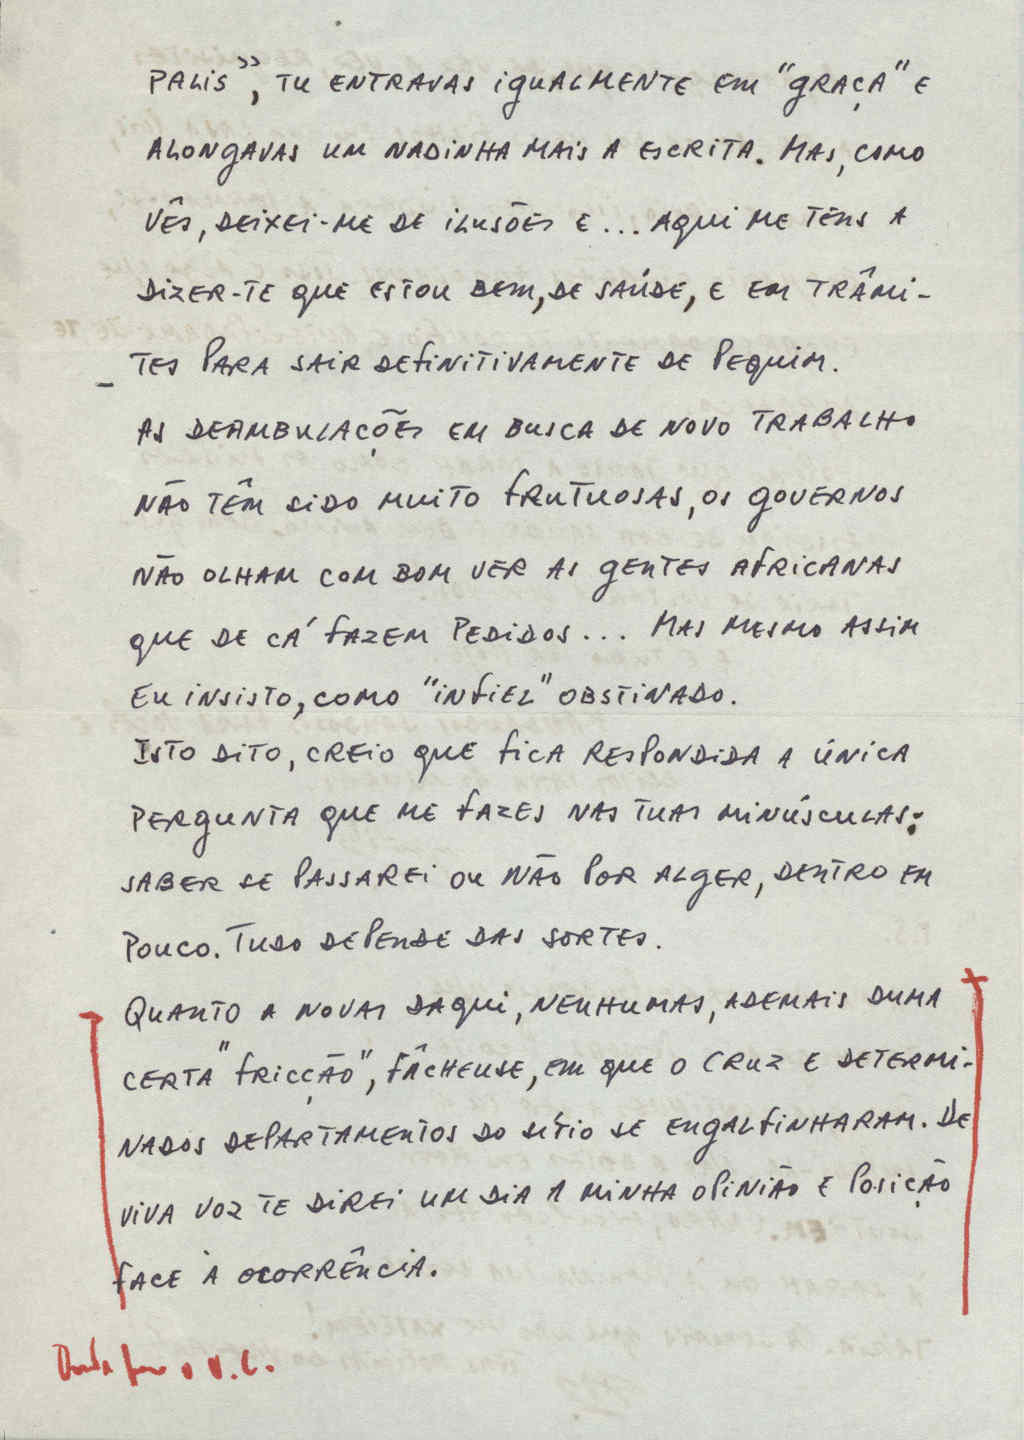 PALIS”, TU ENTRAVAS IGUALMENTE EM “GRAÇA” E
ALONGAVAS UM NADINHA MAIS A ESCRITA. MAS, COMO
VÊS, DEIXEI-ME DE ILUSÕES E... AQUI ME TENS A
DIZER-TE QUE ESTOU BEM, DE SAÚDE, E EM TRÂMI-
TES PARA SAIR DEFINITIVAMENTE DE PEQUIM.
AS DEAMBULAÇÕES EM BUSCA DE NOVO TRABALHO
NÃO TÊM SIDO MUITO FRUTUOSAS, OS GOVERNOS
NÃO OLHAM COM BOM VER AS GENTES AFRICANAS
QUE DE CÁ FAZEM PEDIDOS... MAS MESMO ASSIM
EU INSISTO, COMO “INFIEL” OBSTINADO.
ISTO DITO, CREIO QUE FICA RESPONDIDA A ÚNICA
PERGUNTA QUE ME FAZES NAS TUAS MINÚSCULAS:
SABER SE PASSAREI OU NÃO POR ALGER, DENTRO EM
POUCO. TUDO DEPENDE DAS SORTES.
QUANTO A NOVAS DAQUI, NENHUMAS, ADEMAIS DUMA
CERTA “FRICÇÃO”, FÂCHEUSE, EM QUE O CRUZ E DETERMI-
NADOS DEPARTAMENTOS DO SÍTIO SE ENGALFINHARAM. DE
VIVA VOZ TE DIREI UM DIA A MINHA OPINIÃO E POSIÇÃO
FACE À OCORRÊNCIA.
V.C.